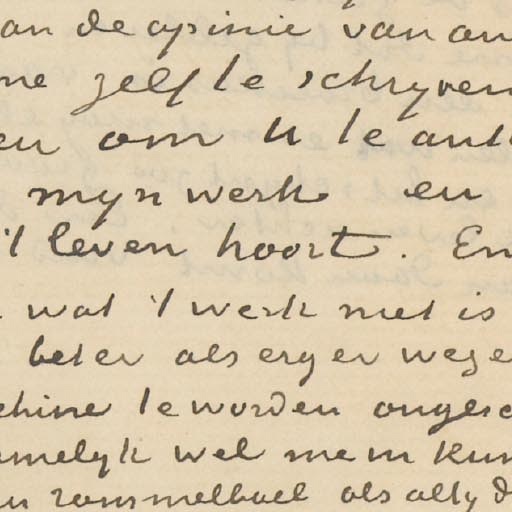 an de opinie van an
me zelf te schryven
en om U te ant
myn werk en
't leven hoort. En
wat 't werk niet is
beter als erger wege
chine te worden onges
amelyk wel mem kun
en rammelbael als alty d